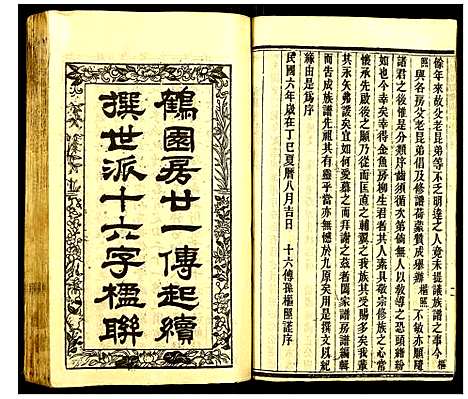 餘年來故父老昆弟等不乏明達之人竟未提議族譜之事今權
熙與各房父老昆弟倡及修譜荷蒙贊成舉辦權熙不敏亦願隨
諸君之後惟是分類序齒須循次第倘無人以敎導之恐頭緒紛
如也今幸矣幸得金魚房柳生君者其人素具敬宗睦族之志常
懷承先啟後之願乃從而匡直之輔翼之我族其受賜多矣庶幾
其永矢弗諼矣宜如何愛慕之而拜謝之茲當闔家譜房譜編輯
而告成族譜先祖其有靈乎當亦無憾於九原矣用是撰文以紀
緣由是爲序
民國六年歲在丁巳夏曆八月吉日 十六傳孫權熙謹序
鶴園房廿一傳起續
撰世派十六字楹聯